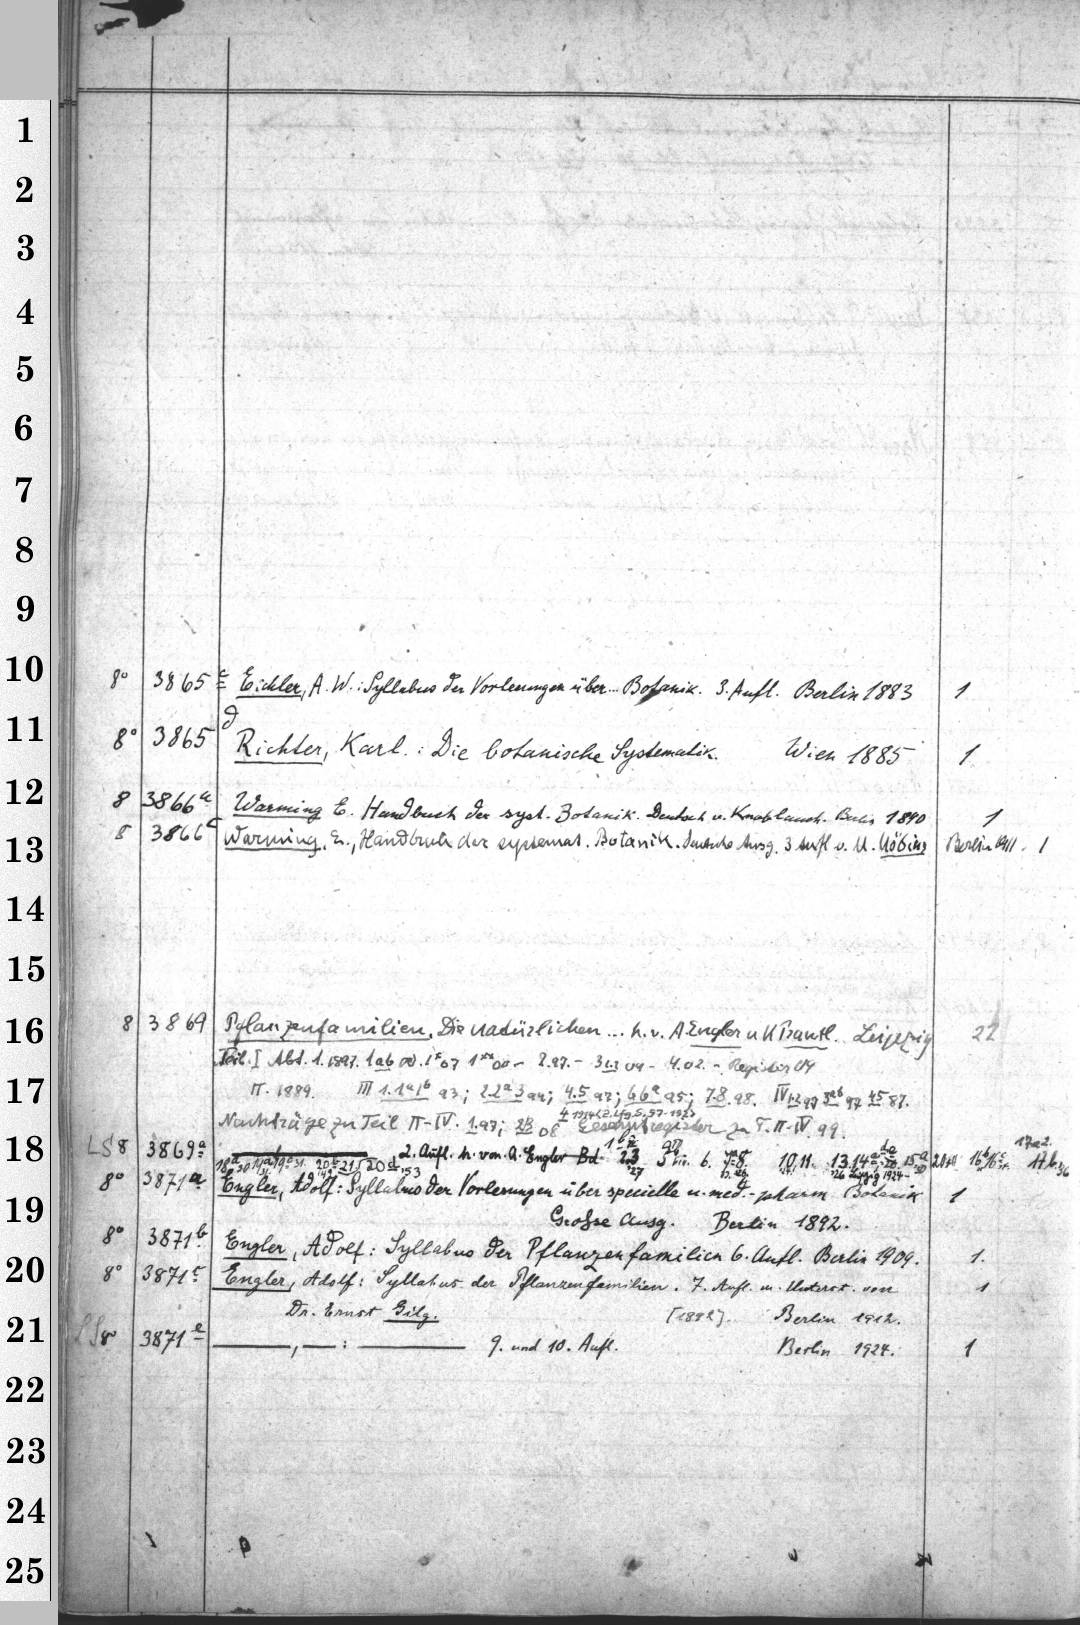 1
2
3
4
5
6
7
8
9
10
8° 3865 c Eichler, A. W.: Syllabus der Vorlesungen über... Botanik. 3. Aufl. Berlin 1883 1
11
8° 3865 d Richter, Karl.: Die botanische Systematik. Wien 1885 1
12
8 3866a Warming E. Handbuch der syst. Botanik. Deutsch v. Knoblauch. Berlin 1890 1
13
8 3866 Warming, E., Handbuch der systemat. Botanik. deutsche Ausg. 3 Aufl v. M. Möbius Berlin 1911. 1
14
15
16
8 3869 Pflanzenfamilien, Die natürlichen ... h. v. A. Engler u K Prantl. Leipzig 22
Teil. I Abt. 1. 1897. 1ab 00. 07 1 00 - 2.97. - 3 09 - 4.02. - Register 09
17
II. 1889. III 1.1a1b 93; 2.2a3 94; 4.5 97; 6.6a 95; 7.8. 98. IV 1.2 97 3ab 97 4.5 87.
Nachträge zu Teil II-IV. 1.97; 2.3 08 Gesamtregister zu T. II-IV. 99.
18
LS 8 3869a 2. Aufl. h. von A. Engler Bd 2.3 5 6. 7a8. 10.11. 13.14a 15a
8° 3871a Engler, Adolf: Syllabus der Vorlesungen über specielle u. med.-pharm Botanik 1
19
Grosse Ausg. Berlin 1892.
8° 3871b Engler, Adolf: Syllabus der Pflanzenfamilien 6. Aufl. Berlin 1909. 1.
20
8° 3871c Engler, Adolf: Syllabus der Pflanzenfamilien. 7. Aufl. m. Unterst. von 1
Dr. Ernst Gilg. [1892]. Berlin 1912.
21
LS 8° 3871e ——, — : ——— 9. und 10. Aufl. Berlin 1924. 1
22
23
24
25